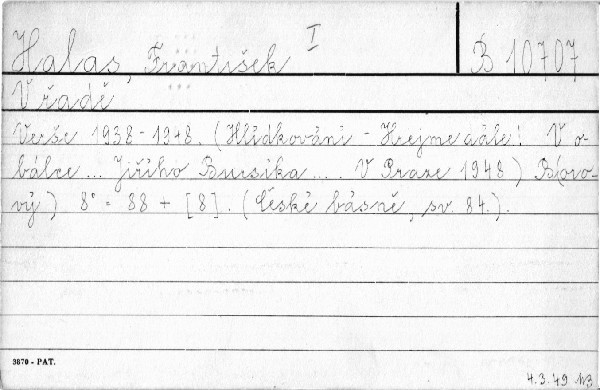 Halas, František I B 10707
V řadě
Verše 1938-1948. (Hlídkování - Hrejme dále! V o-
bálce ... Jiřího ... V Praze 1948) Boro-
vý) 8° - 88 + [8]. (České básně, sv. 84.).
3870 - PAT.
4.3.49